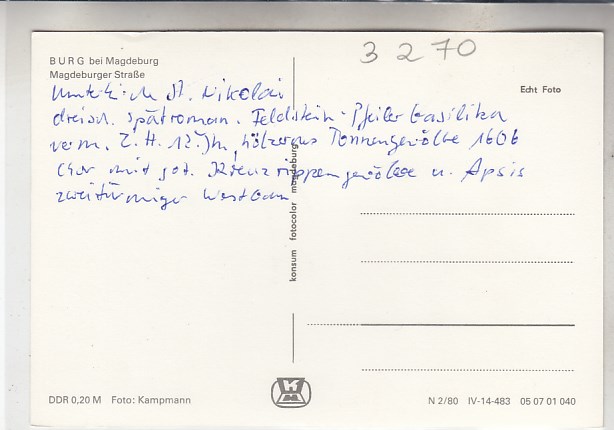 3 2 70
BURG bei Magdeburg
Magdeburger Straße
Echt Foto
St. Nikolai
dreisch. spätroman. Feldstein-Pfeilerbasilika
2. H. 12. Jh, hölzernes Tonnengewölbe 1606
Chor mit got. Kreuzrippengewölbe u. Apsis
zweitürmiger Westbau
konsum fotocolor magdeburg
KM
DDR 0,20 M Foto: Kampmann
N 2/80 IV-14-483 05 07 01 040